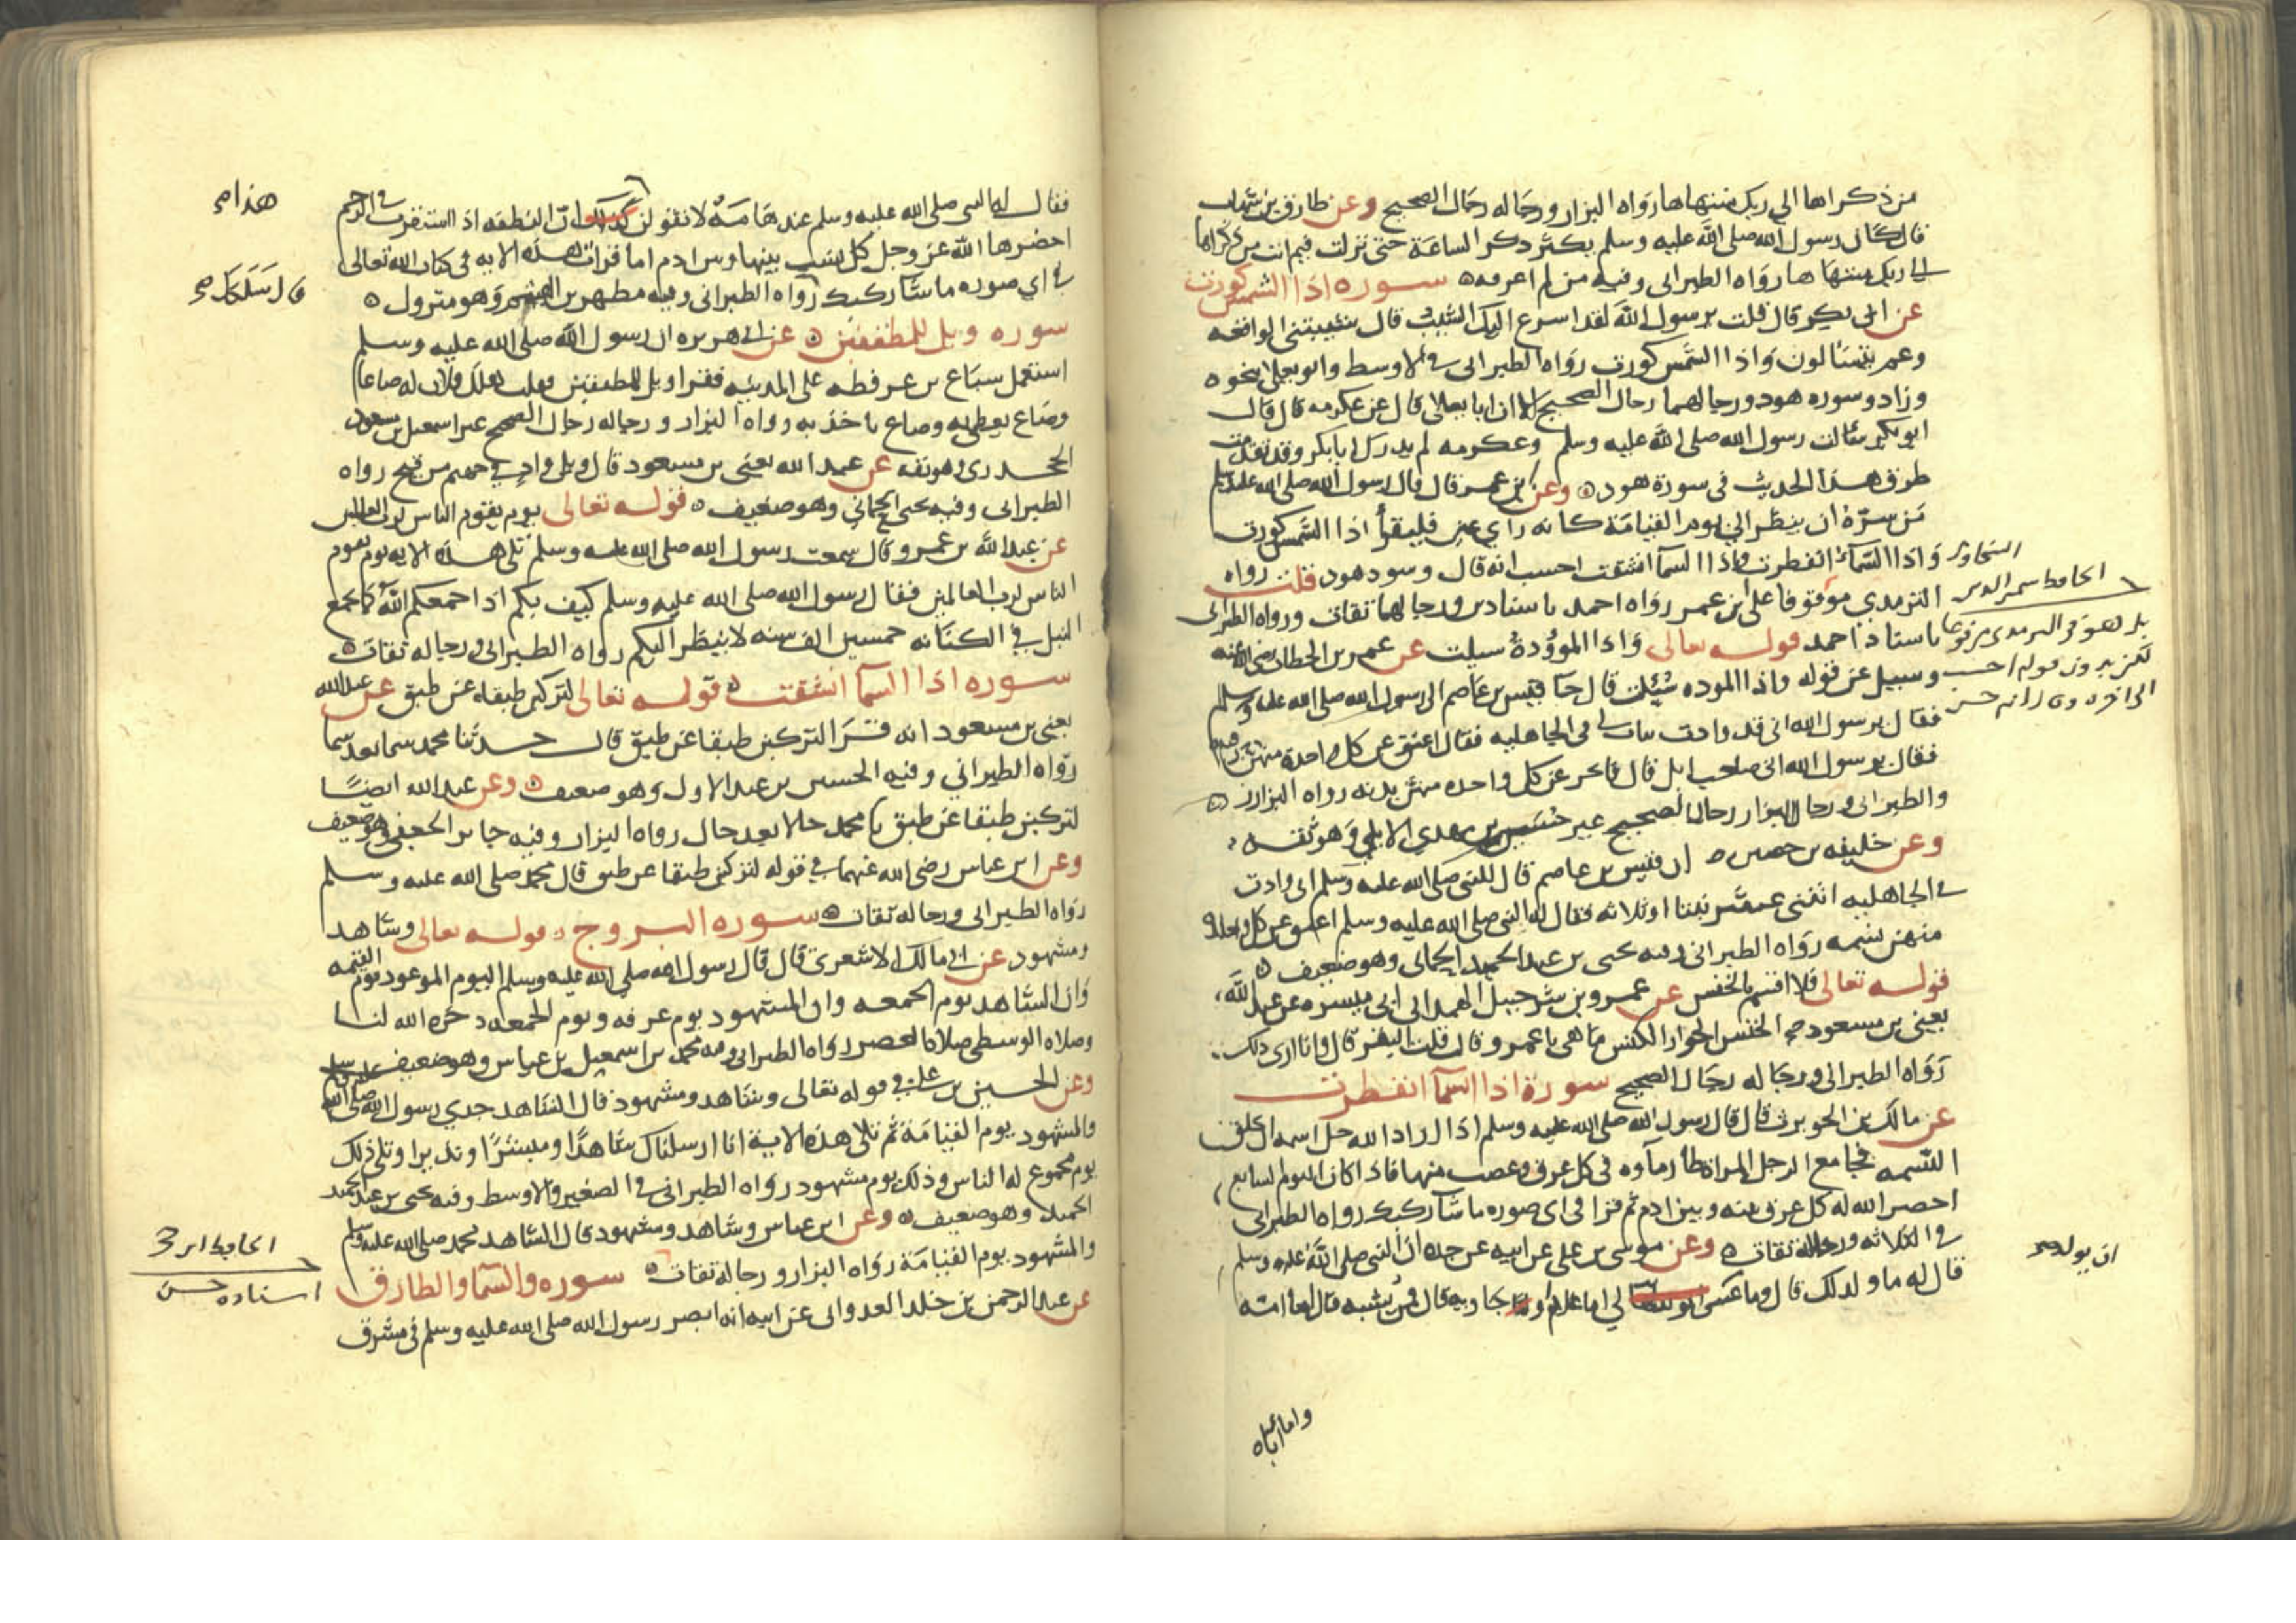 من ذكراها الى ربك منتهاها رواه البزار ورجاله رجال الصحيح وعن طارق بن شهاب
قال كان رسول الله صلى الله عليه وسلم يكثر ذكر الساعة حتى نزلت فيم انت من ذكراها
الى ربك منتهاها رواه الطبراني وفيه من لم اعرفه سورة اذا الشمس كورت
عن ابى بكر قال قلت يرسول الله لقد اسرع اليك الشيب قال شيبتني الواقعه
وعم يتسالون واذا الشمس كورت رواه الطبراني في الاوسط وابو يعلى بنحوه
وزاد وسوره هود ورجالهما رجال الصحيح الا ان ابا يعلى قال عن عكرمه قال قال
ابو بكر سالت رسول الله صلى الله عليه وسلم وعكرمه لم يدرك ابا بكر وقد تقدمت
طرق هذا الحديث في سورة هود وعن ابن عمر قال قال رسول الله صلى الله عليه وسلم
من سره ان ينظر الى يوم القيامة كانه راي عين فليقرأ اذا الشمس كورت
واذا السماء انفطرت واذا السماء انشقت احسب انه قال وسوره هود قلت رواه
الترمدي موقوفا على ابن عمر رواه احمد باسنادين ورجالهما ثقات ورواه الطبراني
باسناد احمد قوله تعالى واذا الموؤدة سيلت عن عمر بن الخطاب رضي الله عنه
وسيل عن قوله واذا الموده سئلت قال جا قيس بن عاصم الى رسول الله صلى الله عليه وسلم
فقال يرسول الله اني قد وادت بنات لي في الجاهليه فقال اعتق عن كل واحدة منهن رقبه
فقال يرسول الله اني صاحب ابل قال فانحر عن كل واحده منهن بدنه رواه البزار
والطبراني ورجال البزار رجال الصحيح غير حسين بن مهدي الابلي وهو ثقه
وعن خليفه بن حصين ان قيس بن عاصم قال للنبي صلى الله عليه وسلم اني وادت
في الجاهليه اثنتي عشر بنتا او ثلاثه فقال له النبي صلى الله عليه وسلم اعتق عن كل واحدة
منهن نسمه رواه الطبراني وفيه يحيى بن عبد الحميد الحماني وهو ضعيف
قوله تعالى فلا اقسم بالخنس عن عمرو بن شرجبيل الهمداني ابي ميسره عن عبد الله
يعني بن مسعود الخنس الجوار الكنس ما هي يا عمرو قال قلت البقر قال وانا ارى ذلك
رواه الطبراني ورجاله رجال الصحيح سورة اذا السما انفطرت
عن مالك بن الحويرث قال قال رسول الله صلى الله عليه وسلم اذا اراد الله جل اسمه ان يخلق
النسمه فجامع الرجل المراة طار مآوه في كل عرق وعصب منها فاذا كان اليوم السابع
احضر الله له كل عرق بينه وبين ادم ثم قرا في اى صوره ما شآ ركبك رواه الطبراني
في الثلاثه ورجاله ثقات وعن موسى بن علي عن ابيه عن جده ان النبي صلى الله عليه وسلم
قال له ما ولد لك قال وما عسى لي اما غلام واما جاريه قال فمن يشبه قال اما امه
واما اباه
الحافظ شمس الدين السخاوي
بل هو في الترمدي مرفوعا
ان يولد صح
فقال له النبي صلى الله عليه وسلم عندها مه لا تقولن كذلك ان النطفه اذا استقرت في الرحم
احضرها الله عز وجل كل نسب بينها وبين ادم اما قرات هذه الايه في كتاب الله تعالى
في اي صوره ما شآ ركبك رواه الطبراني وفيه مطهر بن الهيثم وهو متروك
سوره ويل للمطففين عن ابي هريره ان رسول الله صلى الله عليه وسلم
استعمل سباع بن عرفطه على المدينه فقرا ويل للمطففين فقلت هلك فلان له صاعا
وصاع يعطي به وصاع ياخذ به رواه البزار ورجاله رجال الصحيح غير اسمعيل بن مسعود
الجحدري وهو ثقه عن عبد الله يعني بن مسعود قال ويل واد في جهنم من قيح رواه
الطبراني وفيه يحيى الحماني وهو ضعيف قوله تعالى يوم يقوم الناس لرب العالمين
عن عبد الله بن عمرو قال سمعت رسول الله صلى الله عليه وسلم تلى هذه الايه يوم يقوم
الناس لرب العالمين فقال رسول الله صلى الله عليه وسلم كيف بكم اذا جمعكم الله كما يجمع
النبل في الكنانه خمسين الف سنه لا ينظر اليكم رواه الطبراني ورجاله ثقات
سوره اذا السمآ انشقت قوله تعالى لتركبن طبقا عن طبق عن عبد الله
يعني بن مسعود انه قرا لتركبن طبقا عن طبق قال حدثنا محمد سما بعد سما
رواه الطبراني وفيه الحسين بن عبد الاول وهو ضعيف وعن عبد الله ايضا
لتركبن طبقا عن طبق يا محمد حالا بعد حال رواه البزار وفيه جابر الجعفي وهو ضعيف
وعن ابن عباس رضي الله عنهما في قوله لتركبن طبقا عن طبق قال محمد صلى الله عليه وسلم
رواه الطبراني ورجاله ثقات سوره البروج قوله تعالى وشاهد
ومشهود عن ابي مالك الاشعري قال قال رسول الله صلى الله عليه وسلم اليوم الموعود يوم القيمه
وان الشاهد يوم الجمعه وان المشهود يوم عرفه ويوم الجمعه دخره الله لنا
وصلاه الوسطى صلاة العصر رواه الطبراني وفيه محمد بن اسمعيل بن عياش وهو ضعيف
وعن الحسين بن علي في قوله تعالى وشاهد ومشهود قال الشاهد جدي رسول الله صلى الله عليه وسلم
والمشهود يوم القيامة ثم تلى هذه الاية انا ارسلناك شاهدا ومبشرا ونذيرا وتلى ذلك
يوم مجموع له الناس وذلك يوم مشهود رواه الطبراني في الصغير والاوسط وفيه يحيى بن عبد الحميد
الحماني وهو ضعيف وعن ابن عباس وشاهد ومشهود قال الشاهد محمد صلى الله عليه وسلم
والمشهود يوم القيامة رواه البزار ورجاله ثقات سوره والسما والطارق
عن عبد الرحمن بن خلد العدواني عن ابيه انه ابصر رسول الله صلى الله عليه وسلم في مشرق
قال سلكك صح
اسناده حسن